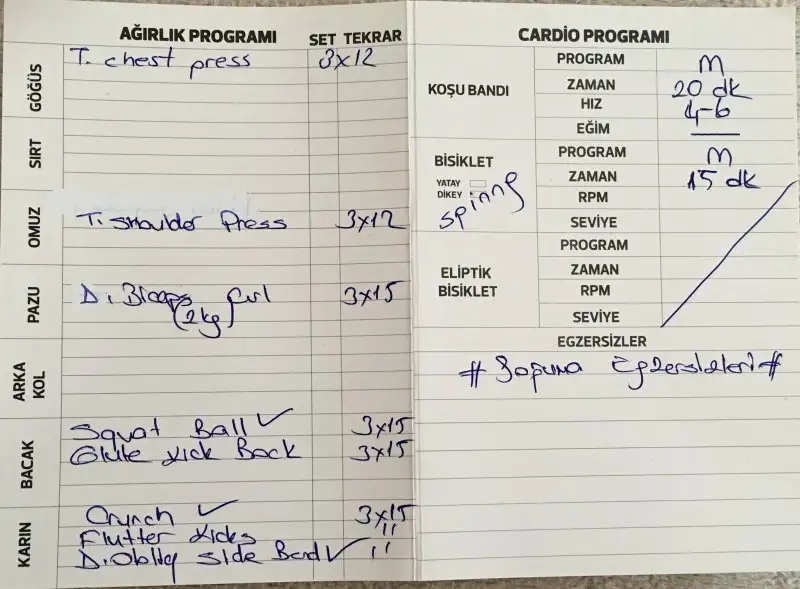 AĞIRLIK PROGRAMI SET TEKRAR
GÖĞÜS
T. chest press 3x12
SIRT
OMUZ
T. Shoulder Press 3x12
PAZU
D. Biceps Curl 3x15
(2kg)
ARKA KOL
BACAK
Squat Ball ✓ 3x15
Glute Kick Back 3x15
KARIN
Crunch ✓ 3x15
Flutter Kicks "
D. Obliq Side Bend ✓ "
CARDİO PROGRAMI
KOŞU BANDI
PROGRAM M
ZAMAN 20 dk
HIZ 4-6
EĞİM —
BİSİKLET
YATAY
DİKEY
spinning
PROGRAM M
ZAMAN 15 dk
RPM
SEVİYE
ELİPTİK
BİSİKLET
PROGRAM
ZAMAN
RPM
SEVİYE
EGZERSİZLER
# Soğuma Egzersizleri #